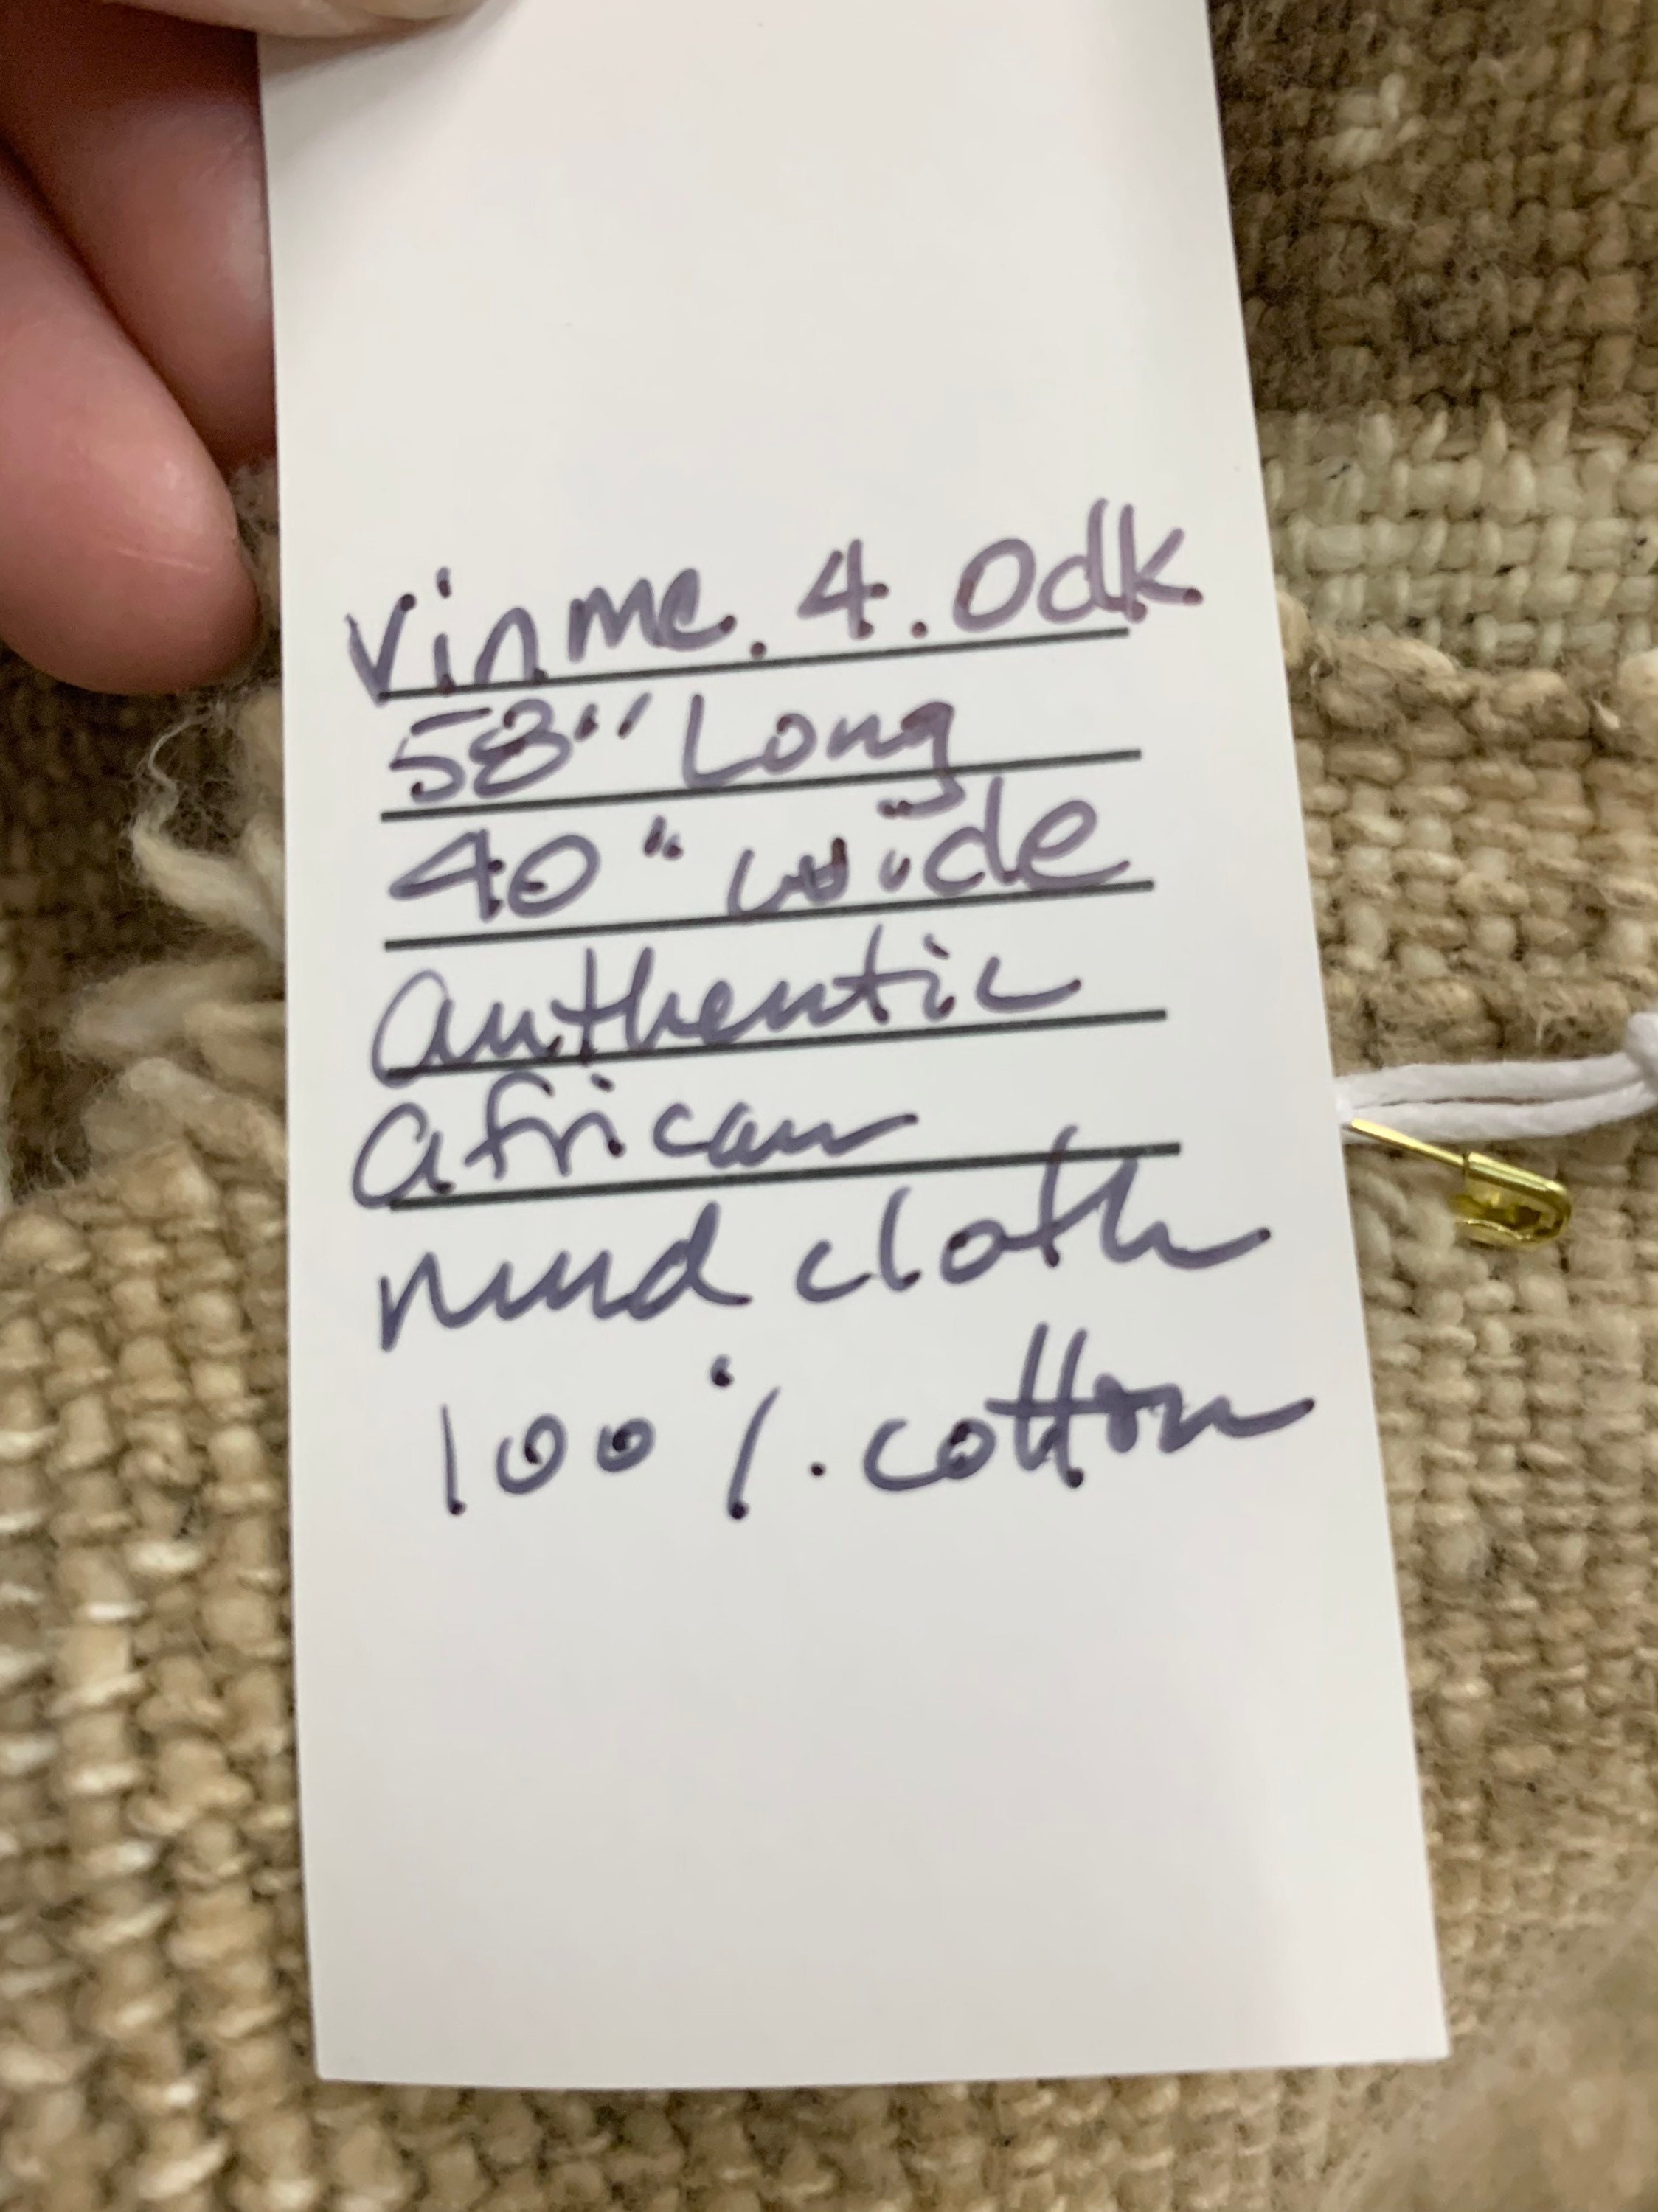 Vinmc. 4.0dk
58" Long
40" wide
authentic
african
mud cloth
100%. cotton